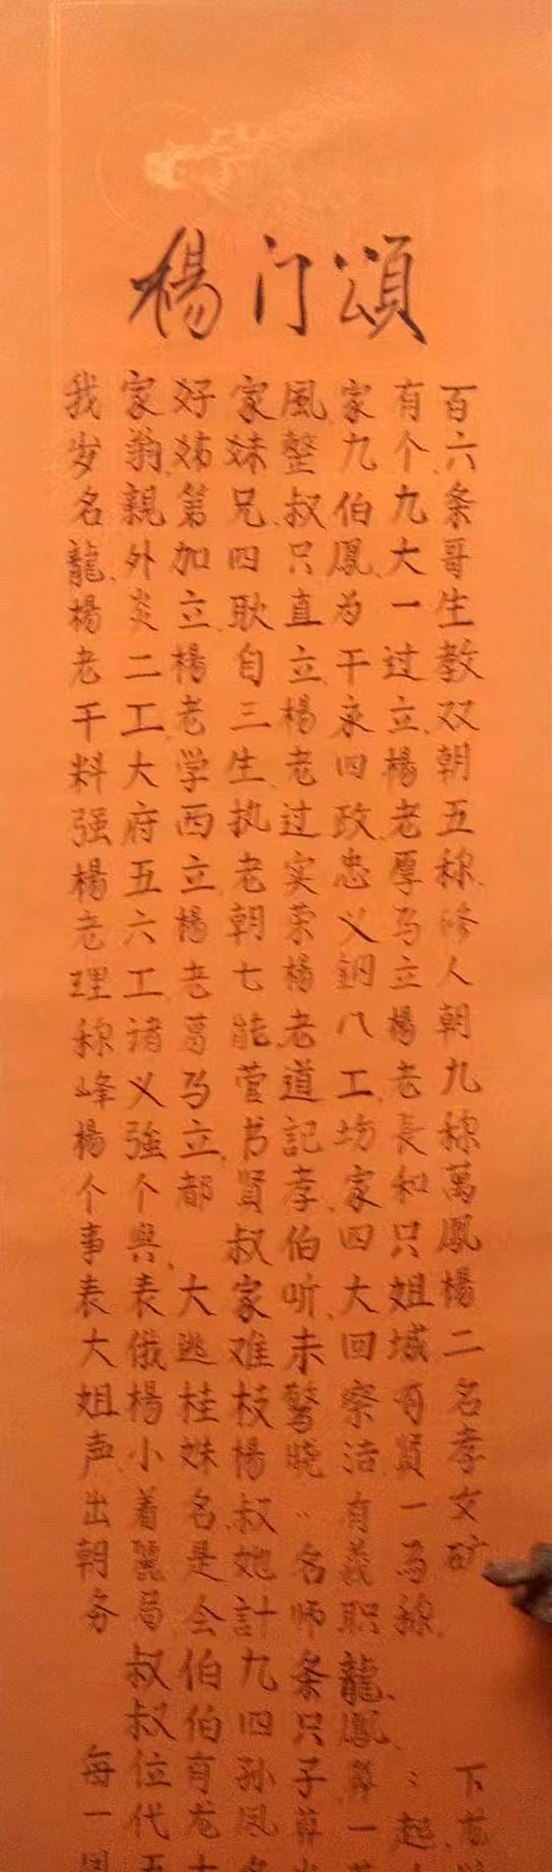 楊门頌
我家好家風家有百
岁翁姊妹整九个六
名親第兄叔伯九条
龍外加四只鳳大哥
楊炎立耿直为一生
老二楊自立干过教
干工老三楊泉立双
料大学生老四楊朝
强府西执过政老五
楊五立老实忠厚称
老六楊朝荣义马修
理工老七楊钢立人
称诸葛能老八楊朝
峰义马营道工老九
楊強立书記坊長称
个个都贤孝家和萬
事興叔伯四只鳳
表表大家听大姐楊
大俄逃难未回城二
姐楊桂枝警察有名
声小妹楊晓洁贤孝
出着名叔有一文
朝麗是她名義马矿
务局会計师职線
叔伯九条龍
叔伯四只鳳
每位有孙子起下
一代龙凤